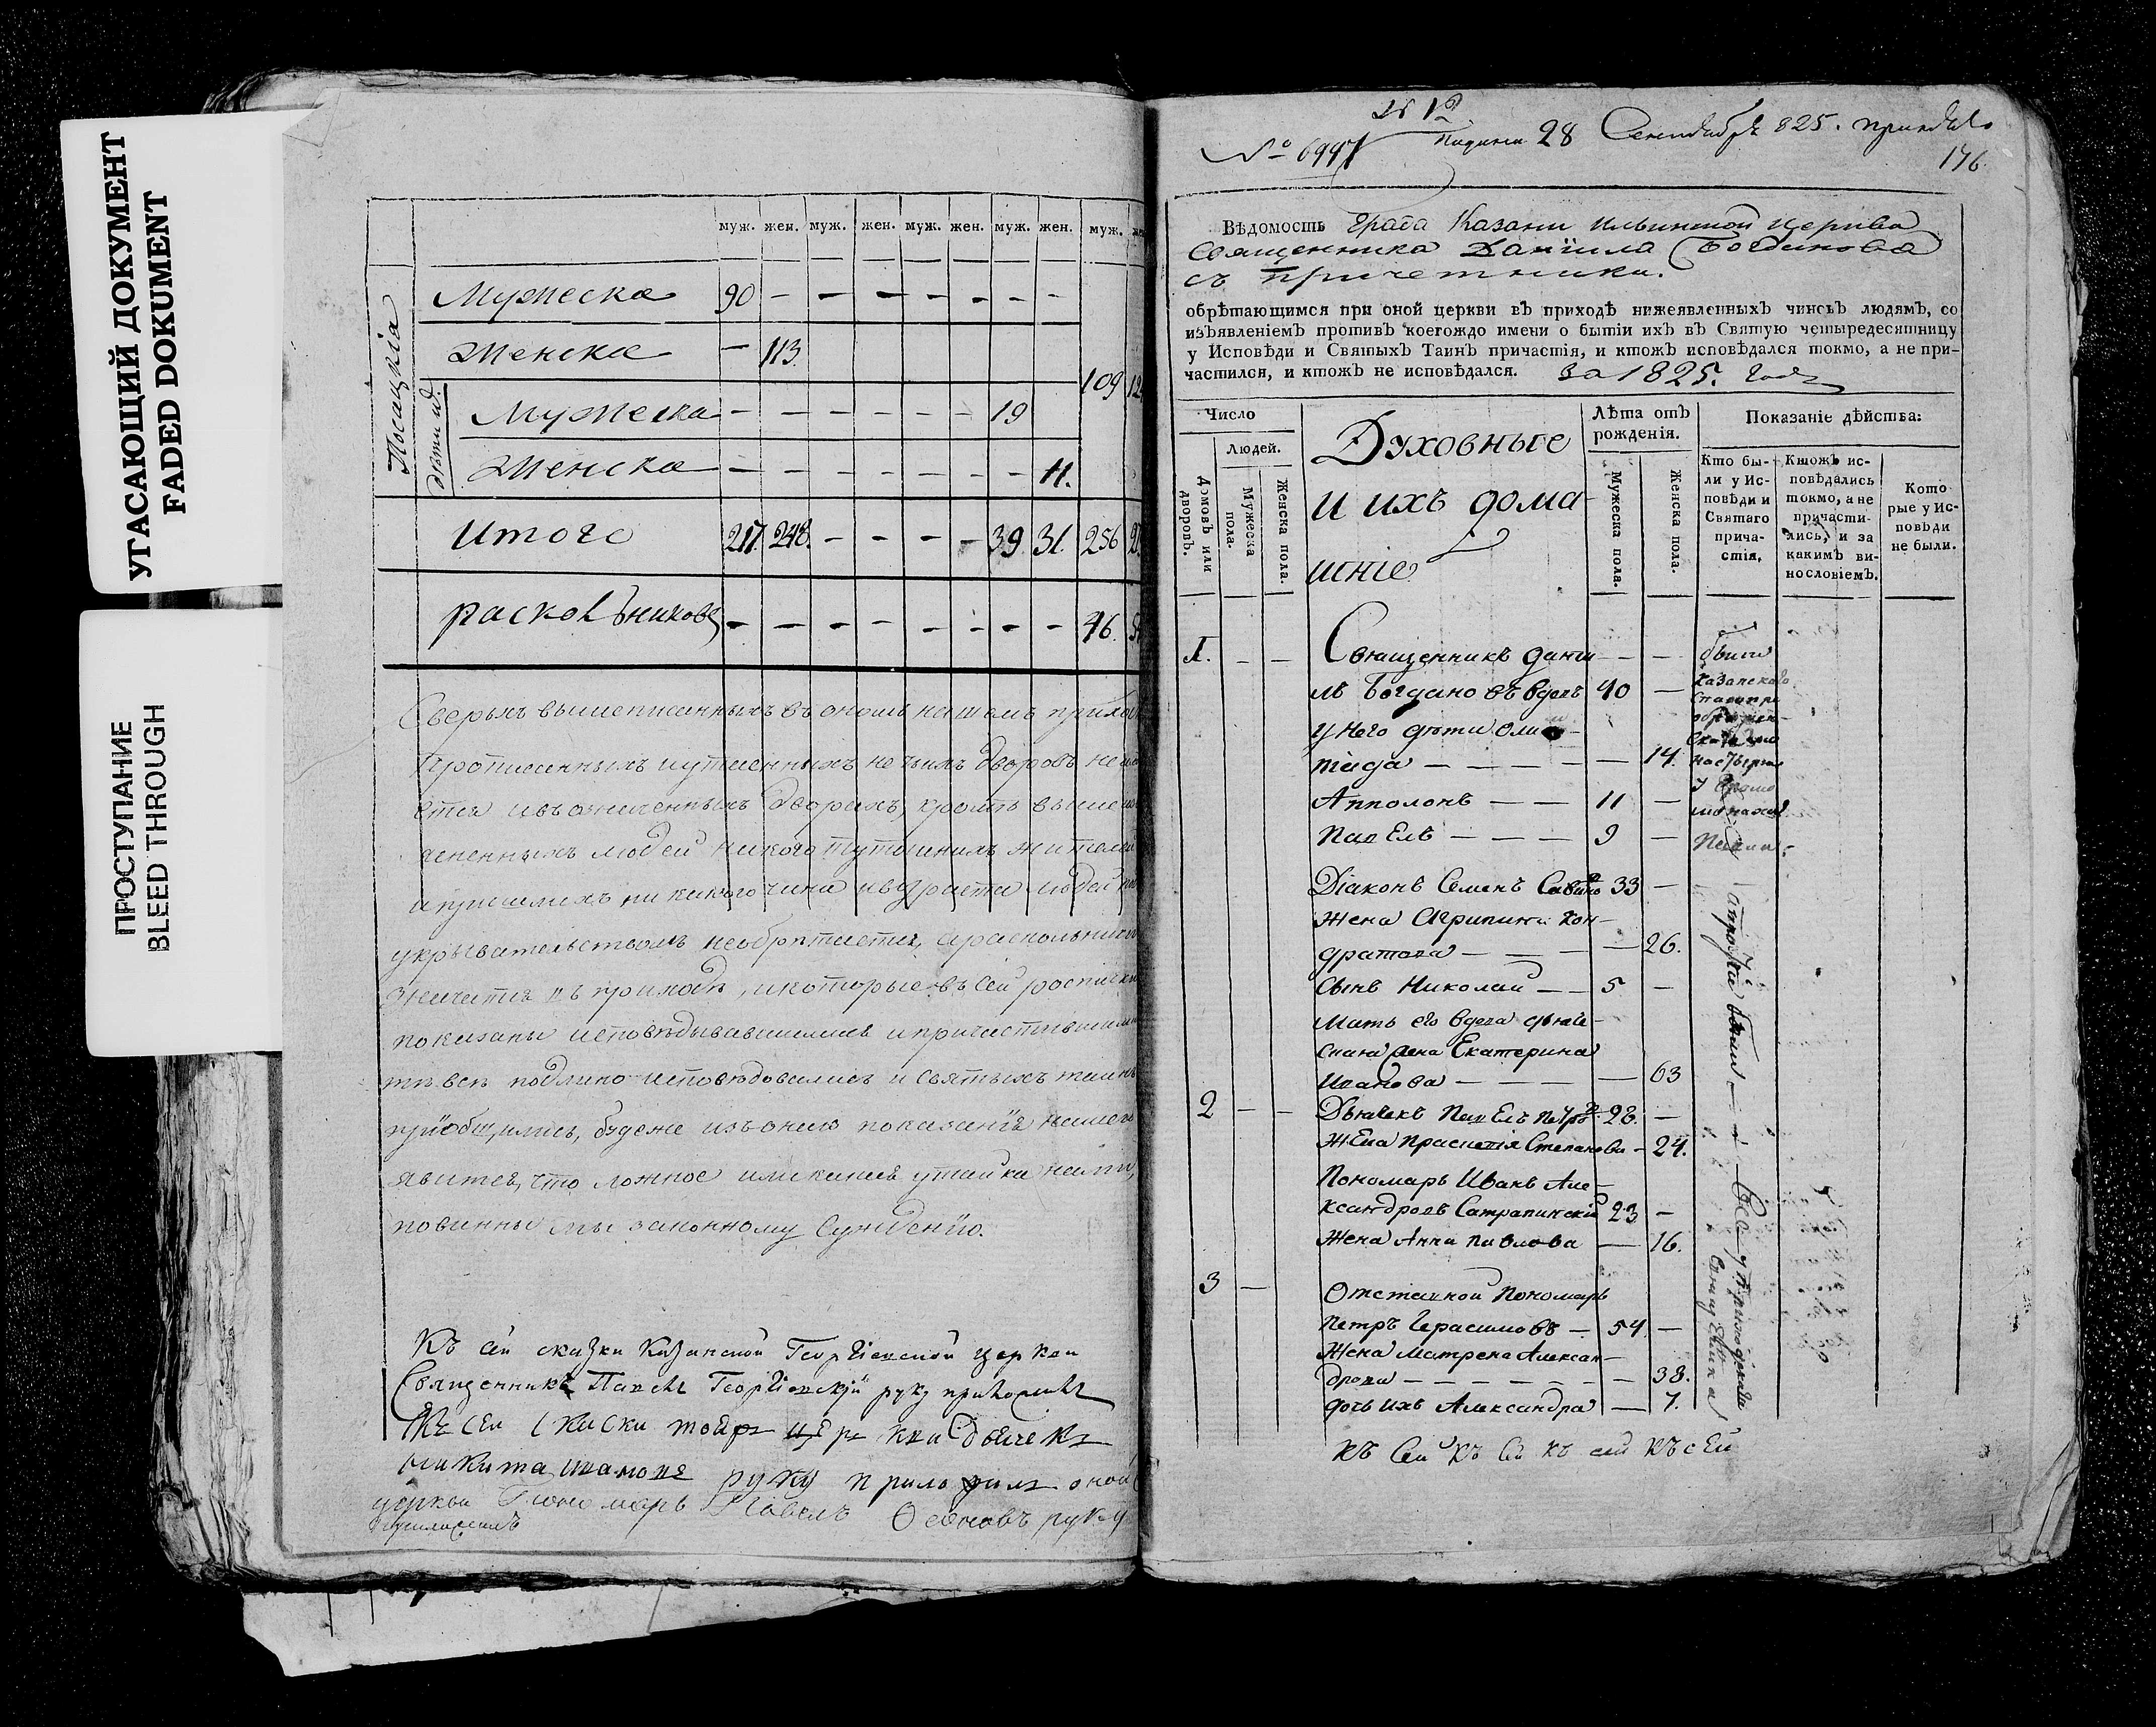 УГАСАЮЩИЙ ДОКУМЕНТ
FADED DOCUMENT
ПРОСТУПАНИЕ
BLEED THROUGH
муж. жен. муж. жен. муж. жен. муж. жен. муж.
Посацкія
Мужеска 90 — — — — — — —
Женска — 113.
109 12
дѣти ид.
Мужеска — — — — — — 19
Женска — — — — — — — 11.
Итого 217. 248. — — — — 39. 31. 256
раскольниковъ — — — — — — — — 46.
Сверьхъ вышеписанныхъ въ ономъ нашемъ прихо
прописанныхъ и утаенныхъ не чьихъ дворовъ не
ется и въ означенныхъ дворахъ, кромѣ выше
ясненныхъ людей никого тутошнихъ жителей
и пришлыхъ ни какого чина и возраста людей
укрывательствомъ необрѣтается, а раскольники
значатся въ приходѣ, и которые въ сей росписки
показаны исповѣдывавшимися и причастившими
тѣ всѣ подлино исповѣдовались и святыхъ таинъ
пріобщились, будеже изъ онаго показанія нашего
явится, что ложное или какая утайка, то
повинны мы законному сужденію.
Къ сей сказки Казанской Георгіевской церкви
Священникъ Павелъ Георгіевскій руку приложилъ
Къ сей скаски тойже церькви дьячекъ
Никита Ивановъ руку приложилъ оной
церкви Пономарь Павелъ руку
приложилъ
№ 12
№ 6997 Подана 28 Сентября 825.
176
Вѣдомость Града Казани Ильинской церкви
Священника Даніила Богданова
съ Причетники.
обрѣтающимся при оной церкви въ приходѣ нижеявленныхъ чиновъ людямъ, со
изъявленіемъ противъ коегождо имени о бытіи ихъ въ Святую четыредесятницу
у Исповѣди и Святыхъ Таинъ причастія, и ктожъ исповѣдался токмо, а не при-
частился, и ктожъ не исповѣдался. За 1825. Годъ
Число
Людей.
Домовъ или дворовъ.
Мужеска пола.
Женска пола.
Духовные
и ихъ дома
шніе
Лѣта отъ рожденія.
Мужеска пола.
Женска пола.
Показаніе дѣйства:
Кто бы-
ли у Ис-
повѣди и
Святаго
прича-
стія.
Ктожъ ис-
повѣдались
токмо, а не
причасти-
лись, и за
какимъ ви-
нословіемъ.
Кото
рые у Ис-
повѣди
не были.
1. — — Священникъ Дании — — были
лъ Богдановъ вдовъ 40 — Казанскаго
у него дѣти Олим
піада — — — — — 14.
Апполонъ — — 11 —
Павелъ — — — 9 —
Діаконъ Семенъ Савинъ 33 —
жена Агрипина Кон-
дратова — — — — 26.
Сынъ Николай — — 5 —
Мать его вдова дьяче-
Екатерина
Иванова — — — — — 63
2 — — Дьячекъ Павелъ Петровъ 28. —
жена Прасковія Степанова — 24.
Пономарь Иванъ Але-
ксандровъ Сатрапинскій 23 —
Жена Анна Павлова — 16.
3 — Отставной Пономарь
Петръ Герасимовъ — 54 —
Жена Матрена Алексан-
дрова — — — — — — 38.
дочь ихъ Александра — 7.
Къ сей Къ сей къ сей къ сей